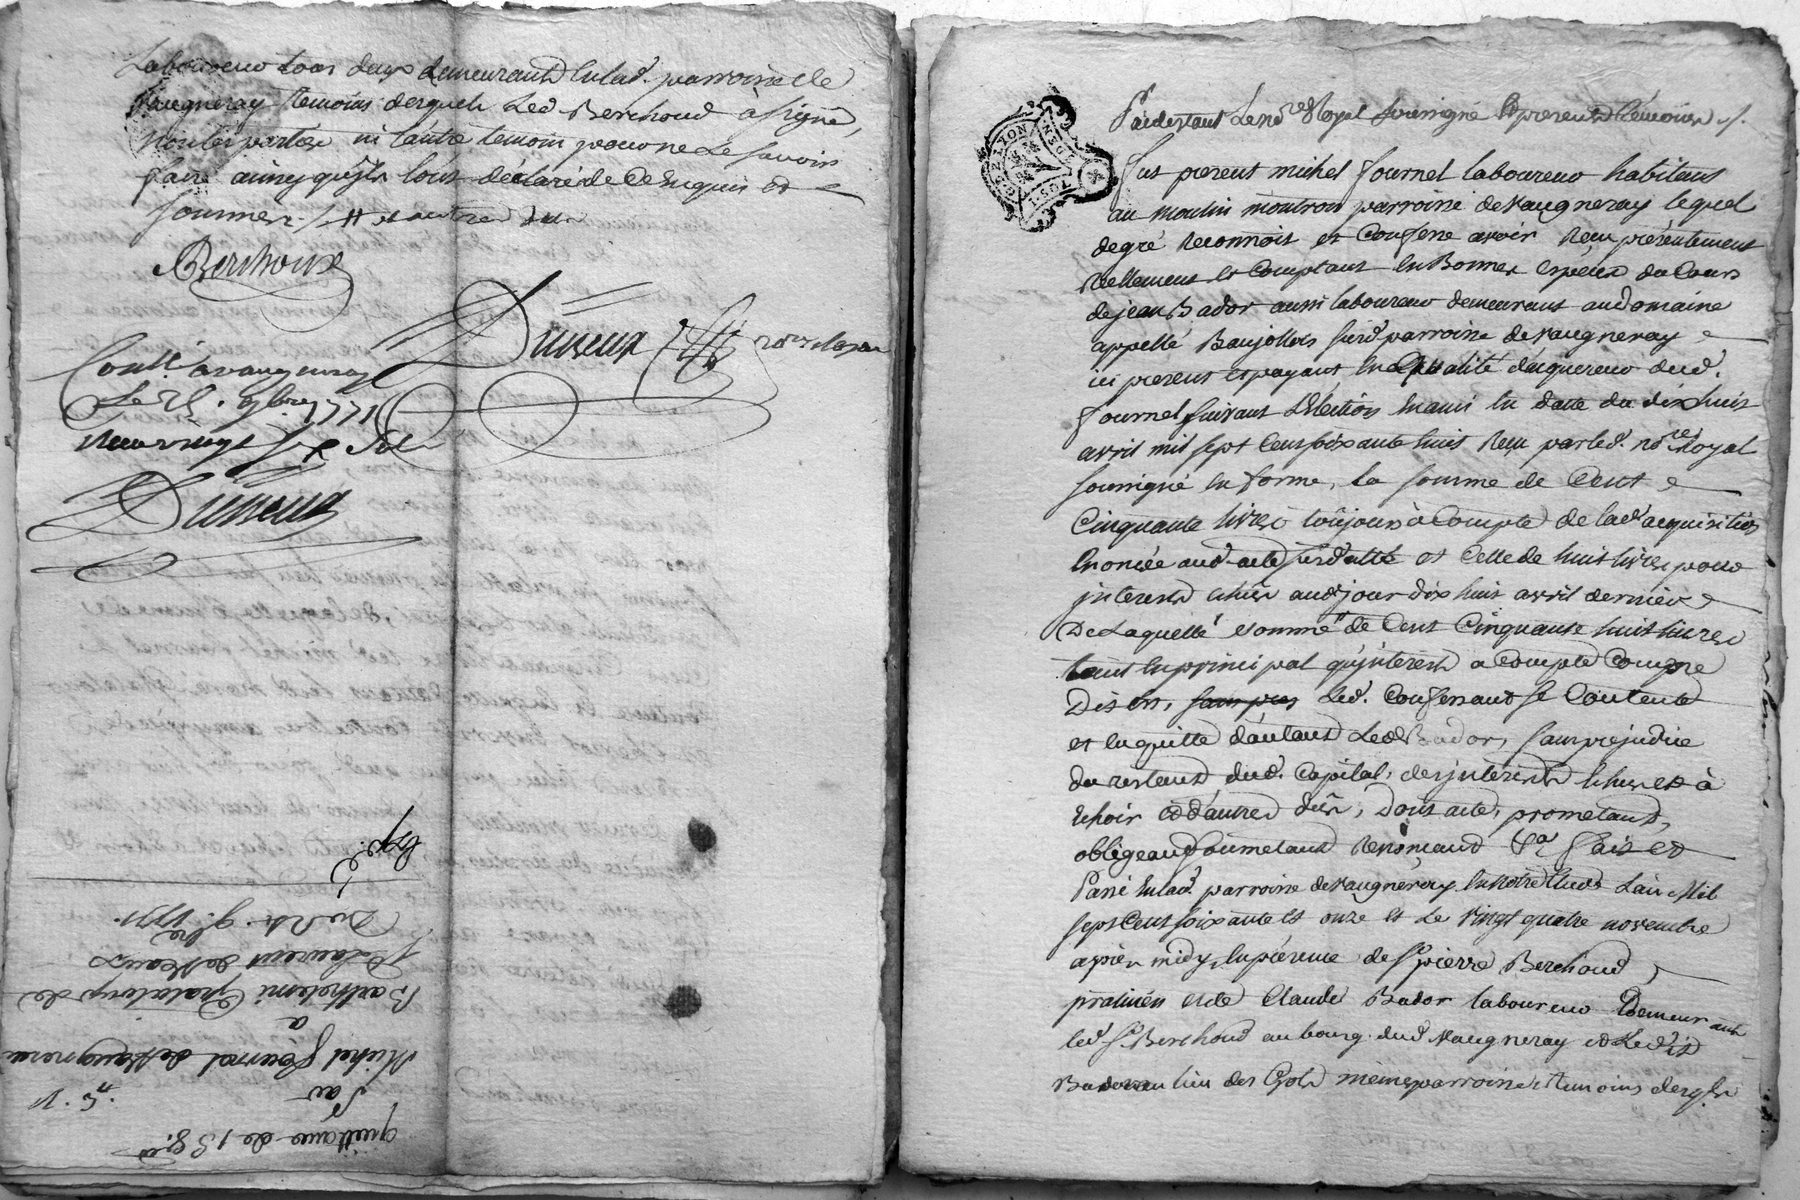 Laboureur tous deux demeurants en lad. parroisse de
Vaugneray temoins desquels Led. Berthoud a signé,
non les parties ni l'autre temoin pour ne le savoir
faire ainsy qu'ils l'ont déclaré de ce enquis et
sommés
Berthoud
Dusseux no.re Royal
Con.lé a vaugneray
Le 9bre 1771
Reçu vingt six sols
Dusseux
Exp.é
Du 24. 9.bre 1771.
St Laurent de Vaux
Barthelemi de
a
Michel Fournel de Vaugneray
Par
5. n. 11
quittance de 158.#
GEN LYON
Pardevant Le no.re Royal soussigné et presents temoins
fut present michel fournel laboureur habitant
au moulin montrou parroisse de Vaugneray lequel
de gré reconnoit et confesse avoir reçu présentement
réellement et comptant en Bonnes espéces du Cours
de jean Bador aussi laboureur demeurant au domaine
appellé Baujollois susd. parroisse de Vaugneray
ici present et payant en qualité d'acquereur dud.
fournel suivant l'élection en ami en datte du dix huit
avril mil sept cent soixante huit reçu par led. no.re Royal
soussigné en forme, la somme de Cent
Cinquante livres toujours à Compte de lad. acquisition
énoncée aud. acte susdatté et celle de huit livres pour
interests échus aud. jour dix huit avril dernier
De Laquelle somme de Cent Cinquante huit livres
tant en principal qu'interests a compte comme
Dit est, Led. Confessant se Contente
et en quitte d'autant Led. Bador, sans prejudice
du restant dud. Capital, des interests échus et à
échoir et d'autres dûs, dont acte, prometant,
obligeant soumetant renonçant &a fait et
Passé en lad. parroisse de Vaugneray en notre étude L'an Mil
sept cent soixante et onze et le vingt quatre novembre
après midy, en présence de Sr pierre Berthoud
praticien et de Claude Bador laboureur Demeurants
led. Sr Berthoud au bourg dud. Vaugneray et Led.
Bador au lieu des même parroisse temoins desquels